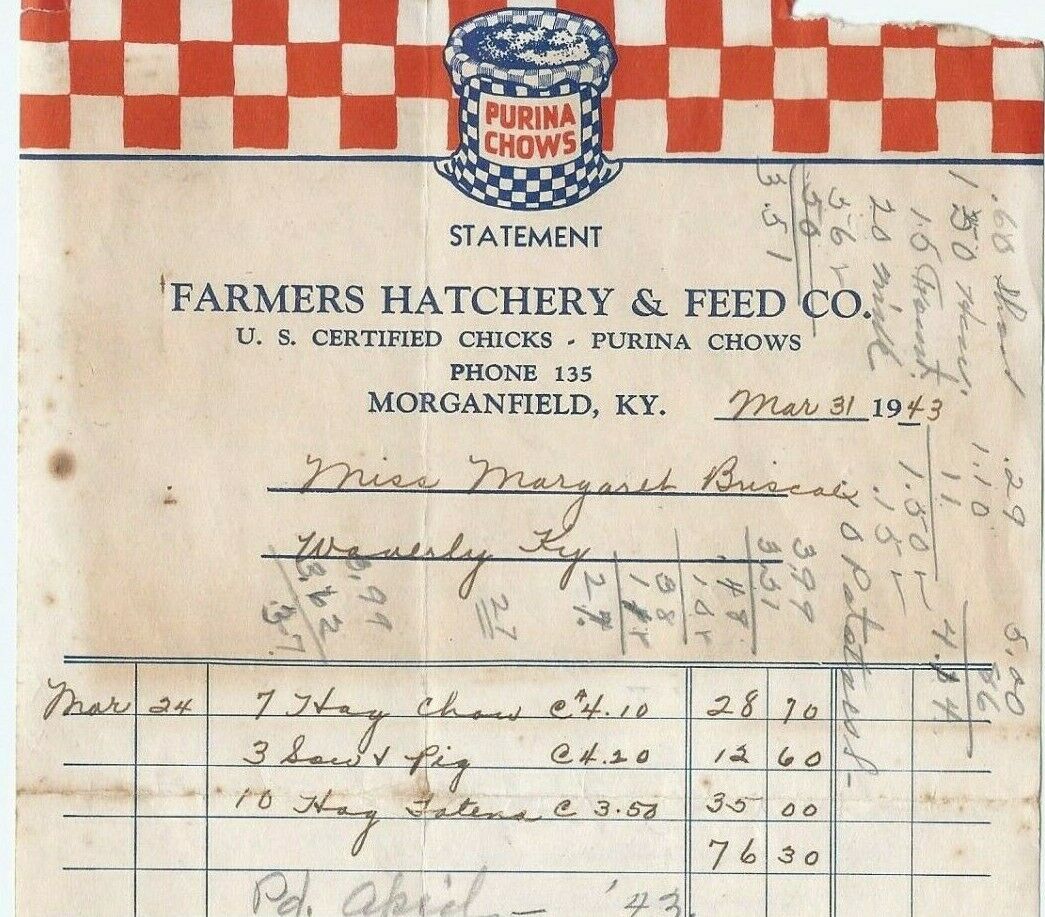 PURINA
CHOWS
STATEMENT
FARMERS HATCHERY & FEED CO.
U. S. CERTIFIED CHICKS - PURINA CHOWS
PHONE 135
MORGANFIELD, KY. Mar 31 1943
Miss Margaret Briscoe
Waverly Ky
Mar 24 7 Hog Chow @ 4.10 28 70
3 Sow & Pig @ 4.20 12 60
10 Hog @ 3.50 35 00
76 30
Pd. April - '43.
.60
1.50
15
20 milk
.50
3.51
.29
1.10
11
1.50
.15
10 Potatoes
5.00
.86
4.14
3.99
3.51
.48
38
27
27
3.99
3.62
37